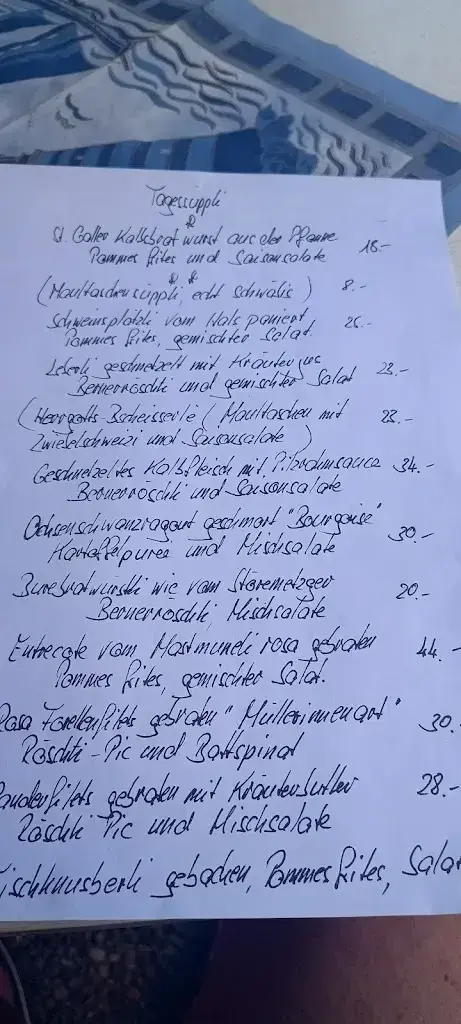 Tagessüppli
St. Galler Kalbsbratwurst aus der Pfanne 18.-
Pommes frites und Saisonsalate
(Maultaschensüppli, echt schwäbis) 8.-
Schweinsplätzli vom Hals paniert 26.-
Pommes frites, gemischter Salat.
Leberli geschnetzelt mit Kräuterjus 28.-
Bernerröschti und gemischter Salat
(Herrgotts-Bscheisserle (Maultaschen mit 23.-
Zwiebelschweizi und Saisonsalate)
Geschnetzeltes Kalbfleisch mit Pilzrahmsauce 34.-
Bernerröschti und Saisonsalate
Ochsenschwanzragout geschmort "Bourgoise" 30.-
Kartoffelpuree und Mischsalate
Burebratwürstli wie vom Störemetzger 20.-
Bernerröschti, Mischsalate
Entrecote vom Mastmuneli rosa gebraten 44.-
Pommes frites, gemischter Salat.
Rosa Forellenfilets gebraten "Müllerinnenart" 30.
Röschti-Pic und Battspinat
filets gebraten mit Kräuterbutter 28.-
Röschti Pic und Mischsalate
Fischknusperli gebachen, Pommes frites, Salat